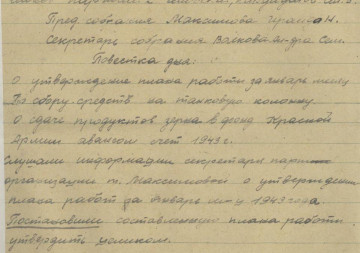 Пред. собрания Максимова
Секретарь собрания Волкова
Повестка дня:
О утверждение плана работы за январь месяц
По сбору средств на танковую колонну.
О сдаче продуктов зерна в фонд Красной
Армии авансом счет 1943 г.
Слушали информации секретаря парт
организации т. Максимовой о утверждении
плана работ за январь м-ц 1943 года
Постановили составленную плана работы
утвердить целиком.